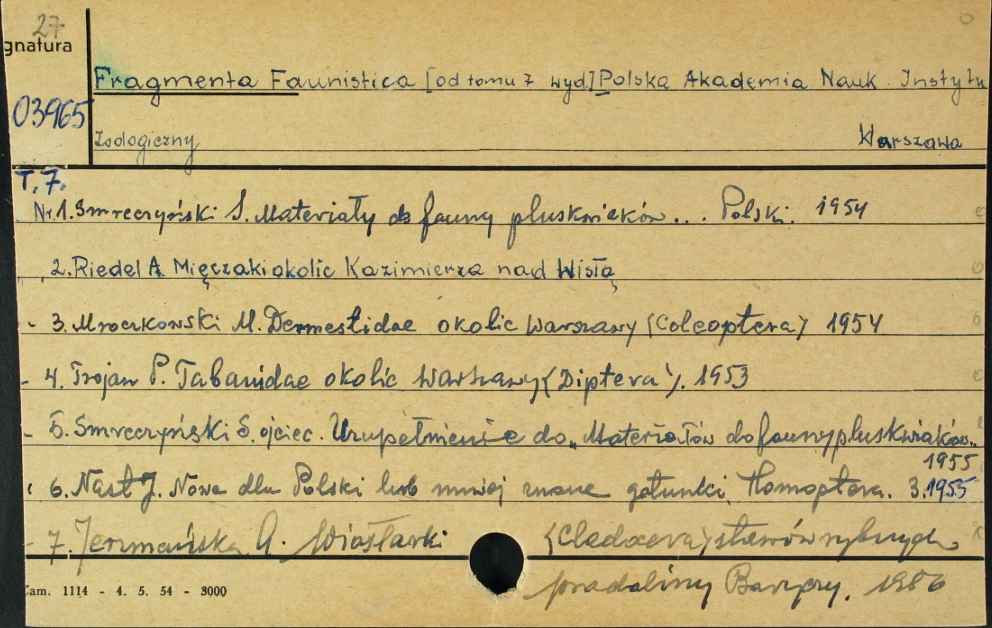 27
gnatura
Fragmenta Faunistica [od tomu 7 wyd.] Polska Akademia Nauk. Instytu
03965
Zoologiczny Warszawa
T. 7.
Nr 1. Smreczyński S. Materiały do fauny pluskwiaków... Polski. 1954
" 2. Riedel A. Mięczaki okolic Kazimierza nad Wisłą
" 3. Mroczkowski M. Dermestidae okolic Warszawy (Coleoptera) 1954
" 4. Trojan P. Tabanidae okolic Warszawy (Diptera). 1953
" 5. Smreczyński S. ojciec. Uzupełnienie do "Materiałów do fauny pluskwiaków..."
1955
" 6. Nast J. Nowe dla Polski lub mniej znane gatunki Homoptera. 3. 1955
" 7. Jerzmańska A. Wioślarki (Cladocera) stawów rybnych
pradoliny Baryczy. 1956
Zam. 1114 - 4. 5. 54 - 3000